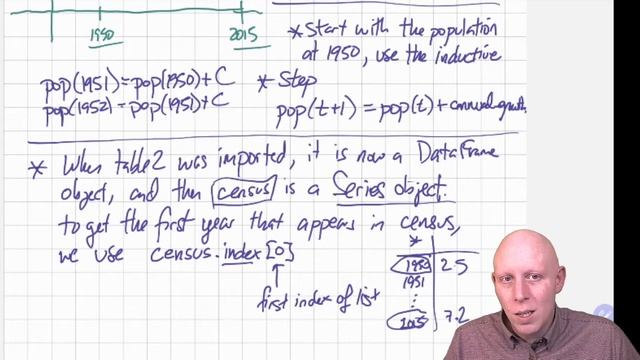 1950
2015
* Start with the population
at 1950, use the inductive
pop(1951) = pop(1950) + C
pop(1952) = pop(1951) + C
* Step
pop(t+1) = pop(t) + annual growth
* When table2 was imported, it is now a DataFrame
object, and then census is a Series object.
to get the first year that appears in census,
we use census.index[0]
first index of list
*
1950 25
1951
⋮
2015 7.2